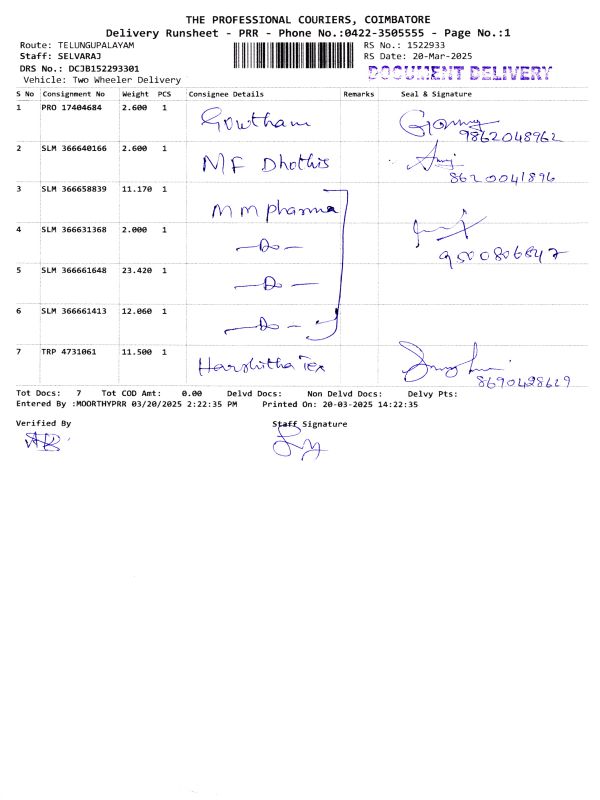 THE PROFESSIONAL COURIERS, COIMBATORE
Delivery Runsheet - PRR - Phone No.:0422-3505555 - Page No.:1
Route: TELUNGUPALAYAM RS No.: 1522933
Staff: SELVARAJ RS Date: 20-Mar-2025
DRS No.: DCJB152293301 DOCUMENT DELIVERY
Vehicle: Two Wheeler Delivery
S No Consignment No Weight PCS Consignee Details Remarks Seal & Signature
1 PRO 17404684 2.600 1 Gowtham
9862048962
2 SLM 366640166 2.600 1 MF Dhothis
8620041896
3 SLM 366658839 11.170 1 MM pharma
4 SLM 366631368 2.000 1 -Do-
9500806847
5 SLM 366661648 23.420 1 -Do-
6 SLM 366661413 12.060 1 -Do-
7 TRP 4731061 11.500 1 Harshitha Tex
8690428619
Tot Docs: 7 Tot COD Amt: 0.00 Delvd Docs: Non Delvd Docs: Delvy Pts:
Entered By :MOORTHYPRR 03/20/2025 2:22:35 PM Printed On: 20-03-2025 14:22:35
Verified By Staff Signature